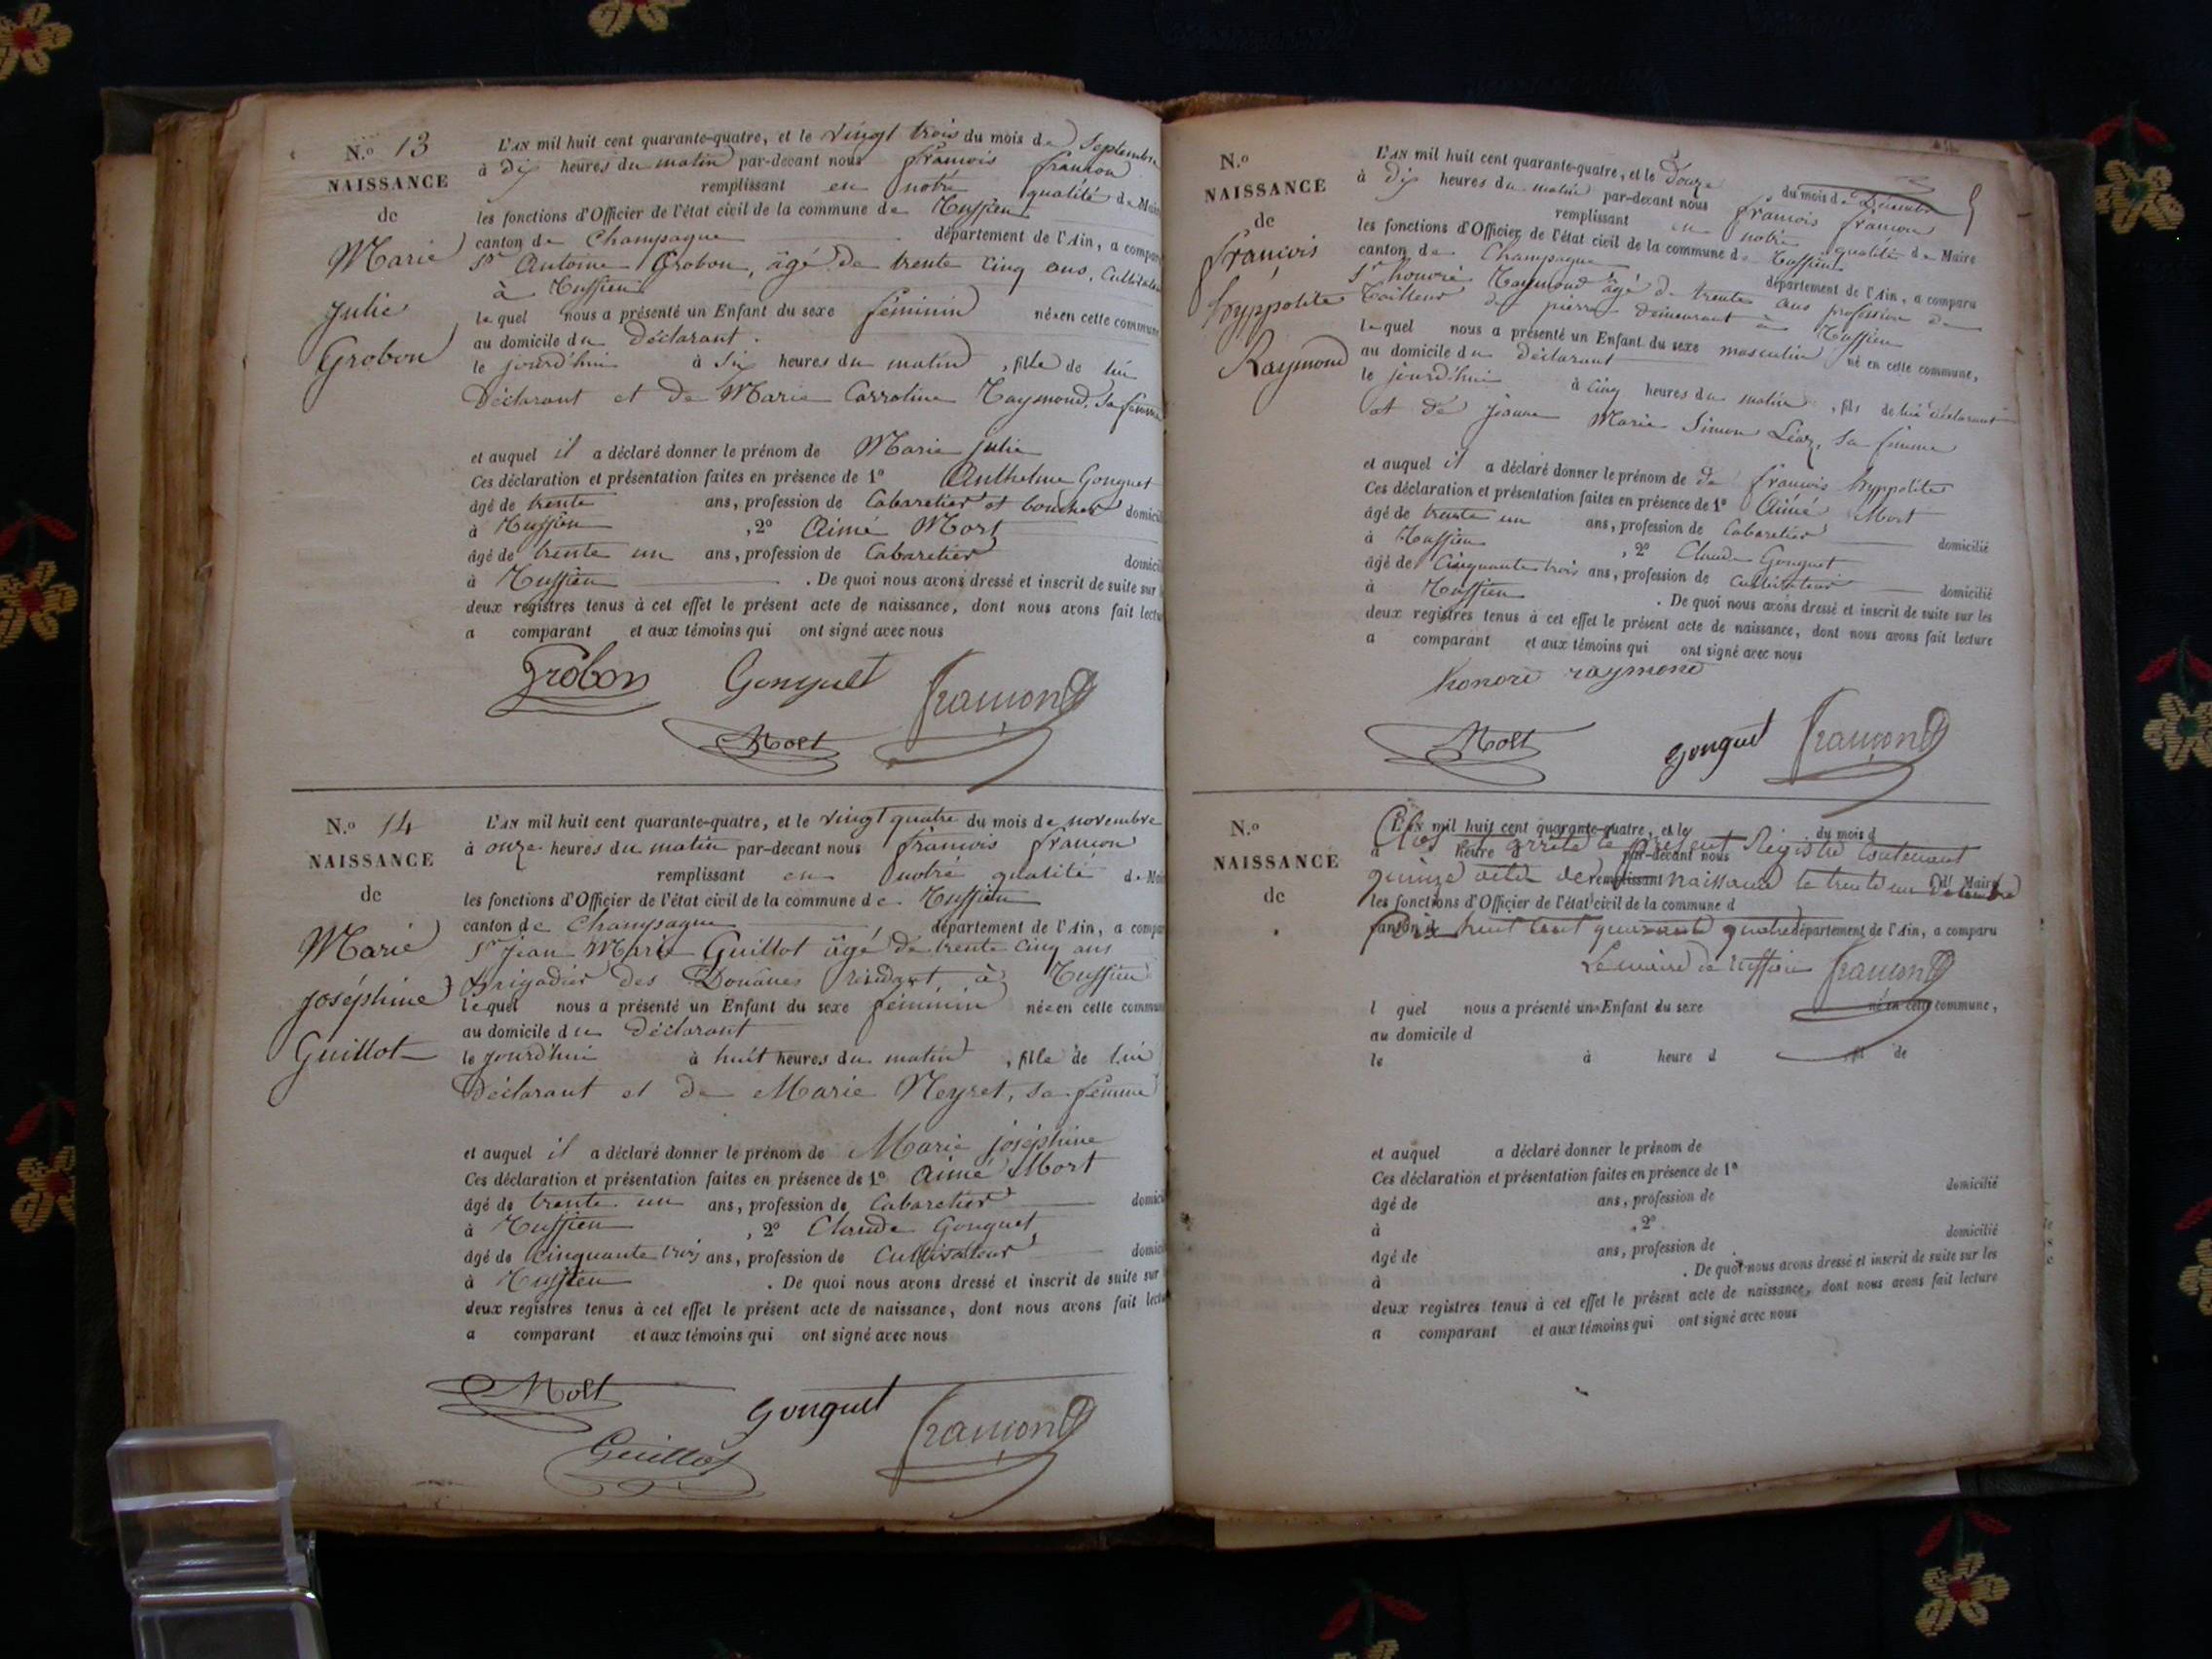 N.o 13
NAISSANCE
de
Marie
Julie
Grobon
L'AN mil huit cent quarante-quatre, et le vingt trois du mois de Septembre
à dix heures du matin par-devant nous françois françon
remplissant en notre qualité de Mair
les fonctions d'Officier de l'état civil de la commune de Ruffieu
canton de Champagne département de l'Ain, a compar
Sr Antoine Grobon, âgé de trente cinq ans, Cultivateur
à Ruffieu
lequel nous a présenté un Enfant du sexe féminin née en cette commune
au domicile du Déclarant.
le jourd'hui à Six heures du matin, fille de lui
Déclarant et de Marie Carroline Raymond, Sa femme
et auquel il a déclaré donner le prénom de Marie julie
Ces déclaration et présentation faites en présence de 1o Anthelme Gonguet
âgé de trente ans, profession de Cabaretier et boucher domicil
à Ruffieu , 2o Aimé Mort
âgé de trente un ans, profession de Cabaretier domici
à Ruffieu . De quoi nous avons dressé et inscrit de suite sur
deux registres tenus à cet effet le présent acte de naissance, dont nous avons fait lectu
a comparant et aux témoins qui ont signé avec nous
Grobon Gonguet françon
Mort
N.o 14
NAISSANCE
de
Marie
Joséphine
Guillot
L'AN mil huit cent quarante-quatre, et le vingt quatre du mois de novembre
à onze heures du matin par-devant nous françois françon
remplissant en notre qualité de Mai
les fonctions d'Officier de l'état civil de la commune de Ruffieu
canton de Champagne , département de l'Ain, a compar
Sr Jean Marie Guillot âgé de trente cinq ans
Brigadier des Douanes résidant à Ruffieu
lequel nous a présenté un Enfant du sexe féminin née en cette commun
au domicile du Déclarant
le jourd'hui à huit heures du matin, fille de lui
Déclarant et de Marie Neyret, sa femme
et auquel il a déclaré donner le prénom de Marie joséphine
Ces déclaration et présentation faites en présence de 1o Aimé Mort
âgé de trente un ans, profession de Cabaretier domici
à Ruffieu , 2o Claude Gonguet,
âgé de Cinquante trois ans, profession de Cultivateur domici
à Ruffieu . De quoi nous avons dressé et inscrit de suite sur
deux registres tenus à cet effet le présent acte de naissance, dont nous avons fait lectu
a comparant et aux témoins qui ont signé avec nous
Mort Gonguet françon
Guillot
N.o
NAISSANCE
de
françois
hyppolite
Raymond
L'AN mil huit cent quarante-quatre, et le Douze du mois de Décembre
à dix heures du matin par-devant nous françois françon
remplissant en notre qualité de Maire
les fonctions d'Officier de l'état civil de la commune de Ruffieu
canton de Champagne département de l'Ain, a comparu
Sr honoré Raymond âgé de trente ans profession de
tailleur de pierre demeurant à Ruffieu
lequel nous a présenté un Enfant du sexe masculin né en cette commune,
au domicile du déclarant
le jourd'hui à Cinq heures du matin, fils de lui déclarant
et de jeanne Marie Simon , sa femme
et auquel il a déclaré donner le prénom de de françois hyppolite
Ces déclaration et présentation faites en présence de 1o Aimé Mort
âgé de trente un ans, profession de Cabaretier domicilié
à Ruffieu , 2o Claude Gonguet
âgé de Cinquante trois ans, profession de Cultivateur domicilié
à Ruffieu . De quoi nous avons dressé et inscrit de suite sur les
deux registres tenus à cet effet le présent acte de naissance, dont nous avons fait lecture
a comparant et aux témoins qui ont signé avec nous
honoré raymond
Mort gonguet françon
N.o
NAISSANCE
de
L'AN mil huit cent quarante-quatre, et le du mois d
Clos et arrêté le présent Régistre Contenant
à heure d par-devant nous
quinze actes de naissance le trente un Décembre
remplissant d Maire
les fonctions d'Officier de l'état civil de la commune d
canton d département de l'Ain, a comparu
huit cent quarante quatre
Le maire de Ruffieu françon
l quel nous a présenté un Enfant du sexe né en cette commune,
au domicile d
le à heure d , fil de
et auquel a déclaré donner le prénom de
Ces déclaration et présentation faites en présence de 1o
âgé de ans, profession de domicilié
à , 2o
âgé de ans, profession de domicilié
à . De quoi nous avons dressé et inscrit de suite sur les
deux registres tenus à cet effet le présent acte de naissance, dont nous avons fait lecture
a comparant et aux témoins qui ont signé avec nous